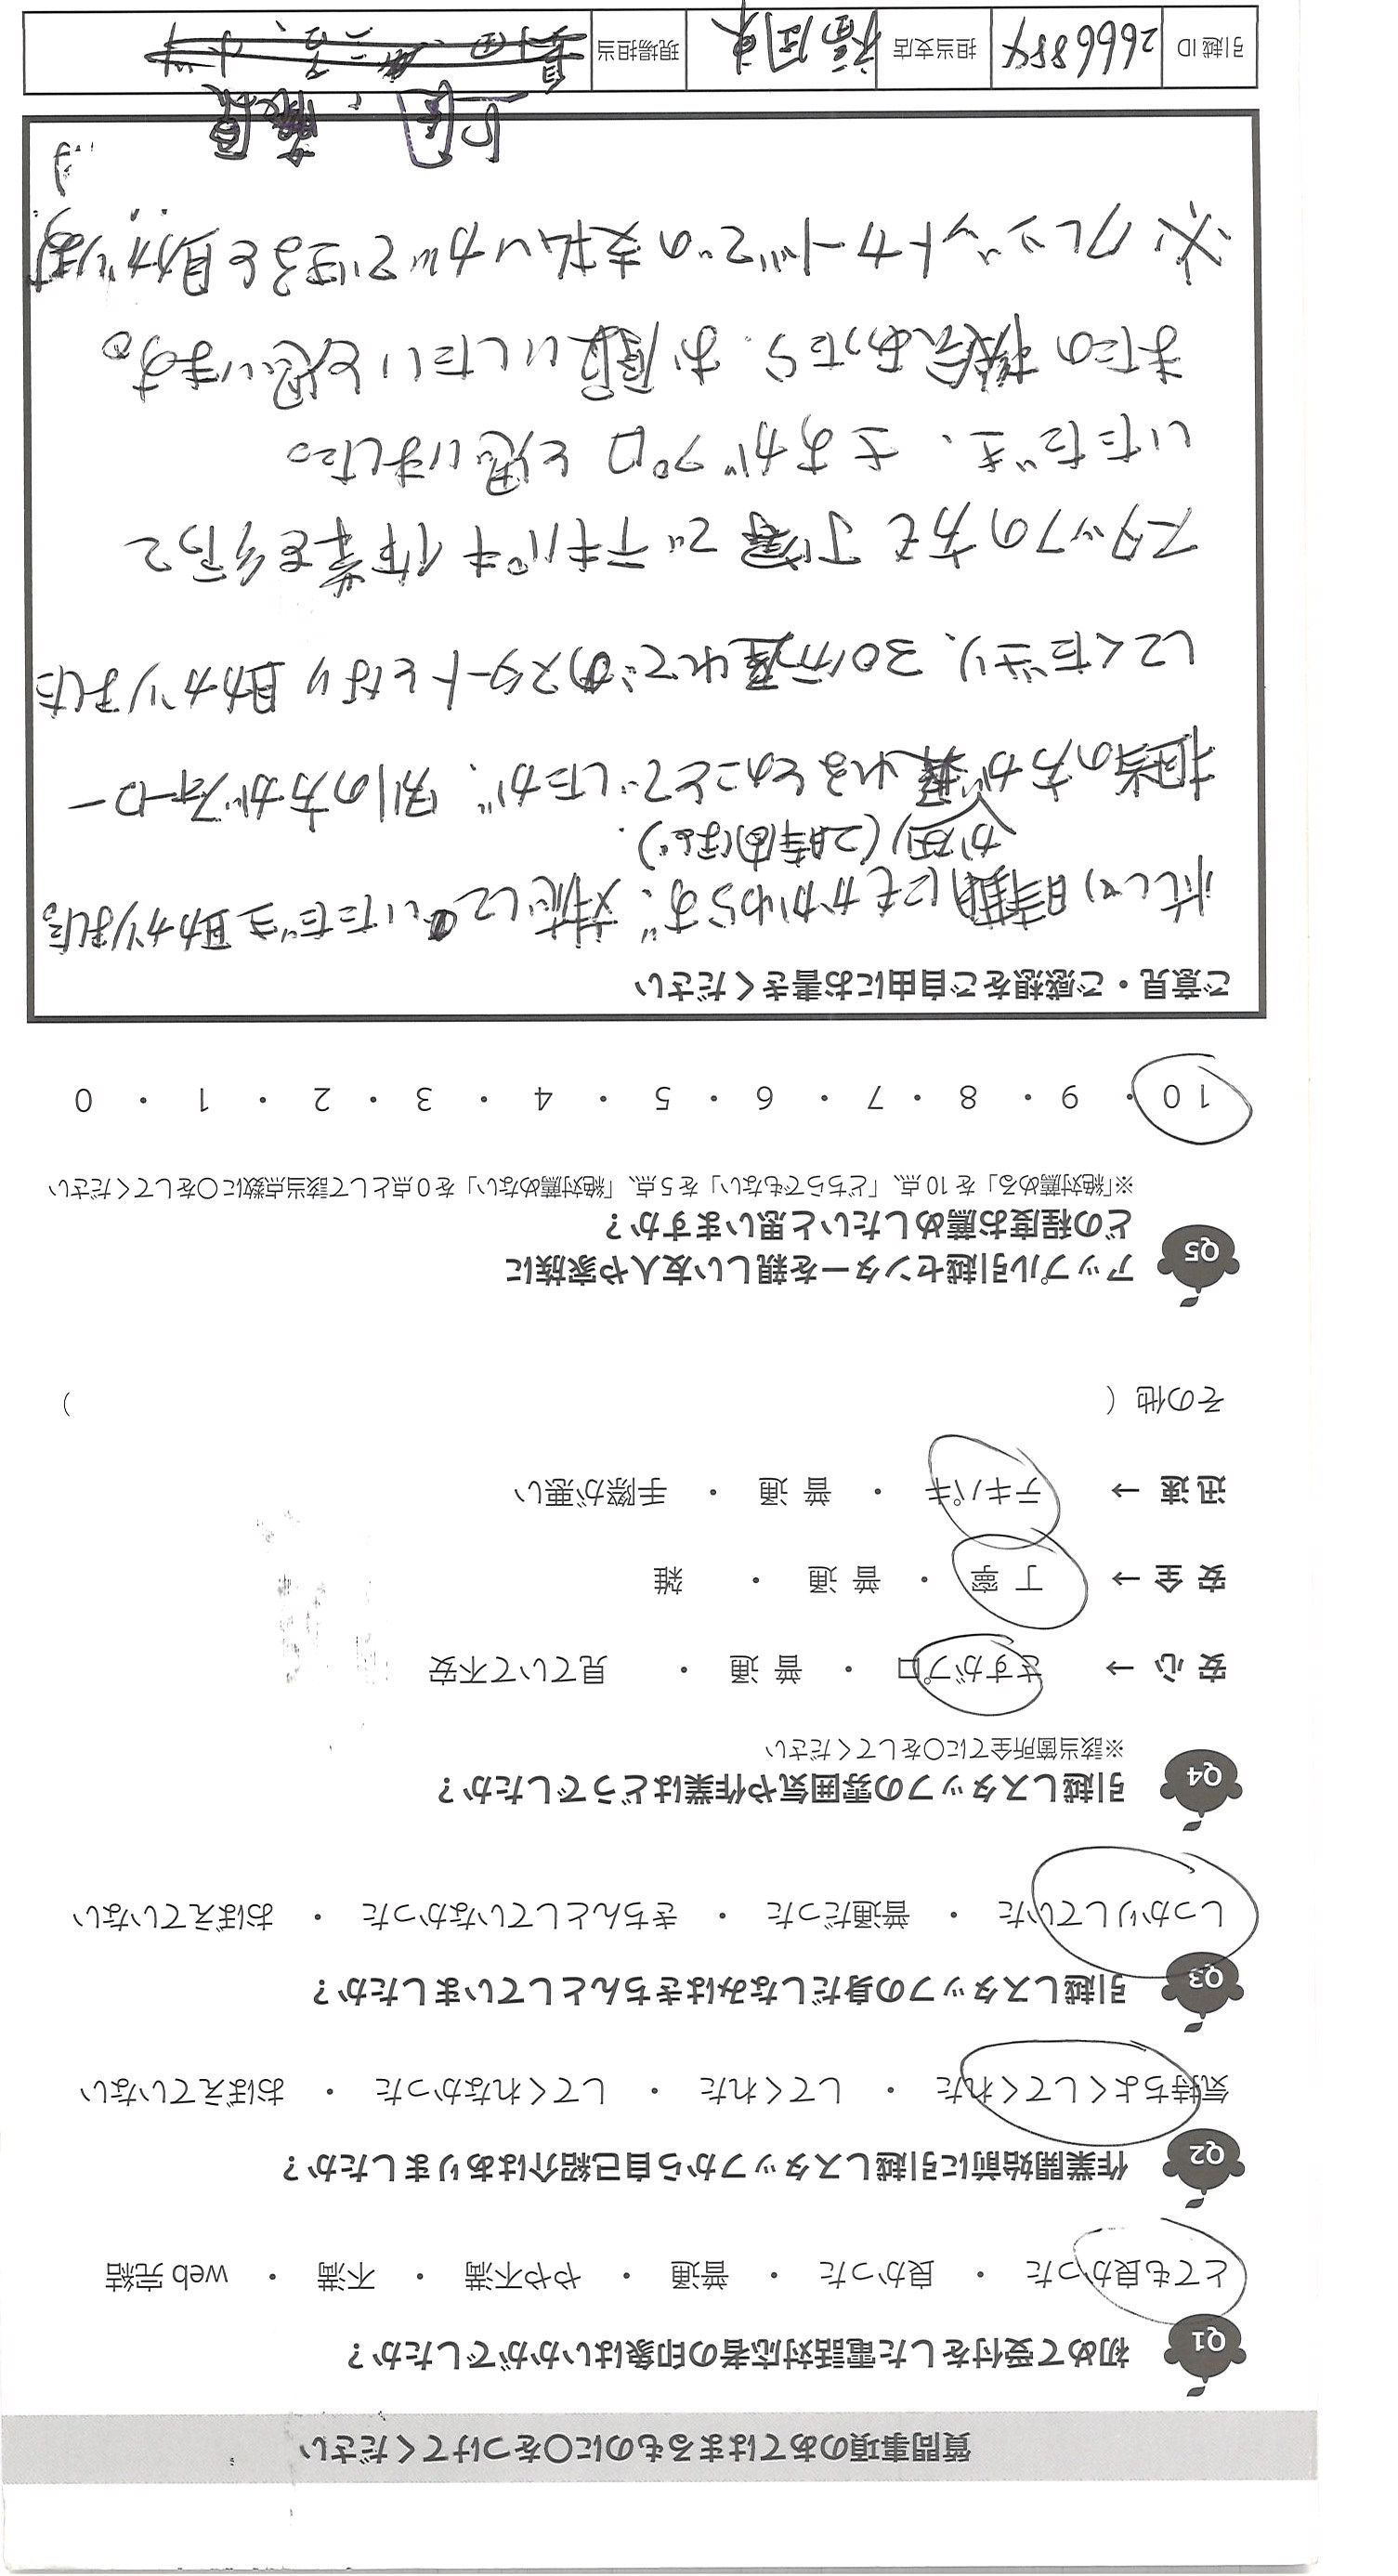 質問事項のあてはまるものに〇をつけてください
Q1 初めて受付をした電話対応者の印象はいかがでしたか?
とても良かった ・ 良かった ・ 普通 ・ やや不満 ・ 不満 ・ web 完結
Q2 作業開始前に引越しスタッフから自己紹介はありましたか?
気持ちよくしてくれた ・ してくれた ・ してくれなかった ・ おぼえていない
Q3 引越しスタッフの身だしなみはきちんとしていましたか?
しっかりしていた ・ 普通だった ・ きちんとしていなかった ・ おぼえていない
Q4 引越しスタッフの雰囲気や作業はどうでしたか?
※該当箇所全てに〇をしてください
安心 → さすがプロ ・ 普通 ・ 見ていて不安
安全 → 丁寧 ・ 普通 ・ 雑
迅速 → テキパキ ・ 普通 ・ 手際が悪い
その他 ( )
Q5 アップル引越センターを親しい友人や家族に
どの程度お薦めしたいと思いますか?
※「絶対薦める」を 10 点、「どちらでもない」を 5 点、「絶対薦めない」を 0 点として該当点数に〇をしてください
10 ・ 9 ・ 8 ・ 7 ・ 6 ・ 5 ・ 4 ・ 3 ・ 2 ・ 1 ・ 0
ご意見・ご感想をご自由にお書きください
忙しい時期にもかかわらず、対応していただき助かりました。
かなり(2時間ほど)
担当の方が遅れるとのことでしたが、別の方がフォロー
してくださり、30分遅れでのスタートとなり助かりました
スタッフの方も丁寧でテキパキ作業を行って
いただき、さすがプロと思いました。
またの機会あったら、お願いしたいと思います。
※クレジットカードでの支払いができると助かります
引越 ID 2666884 担当支店 福岡東 現場担当